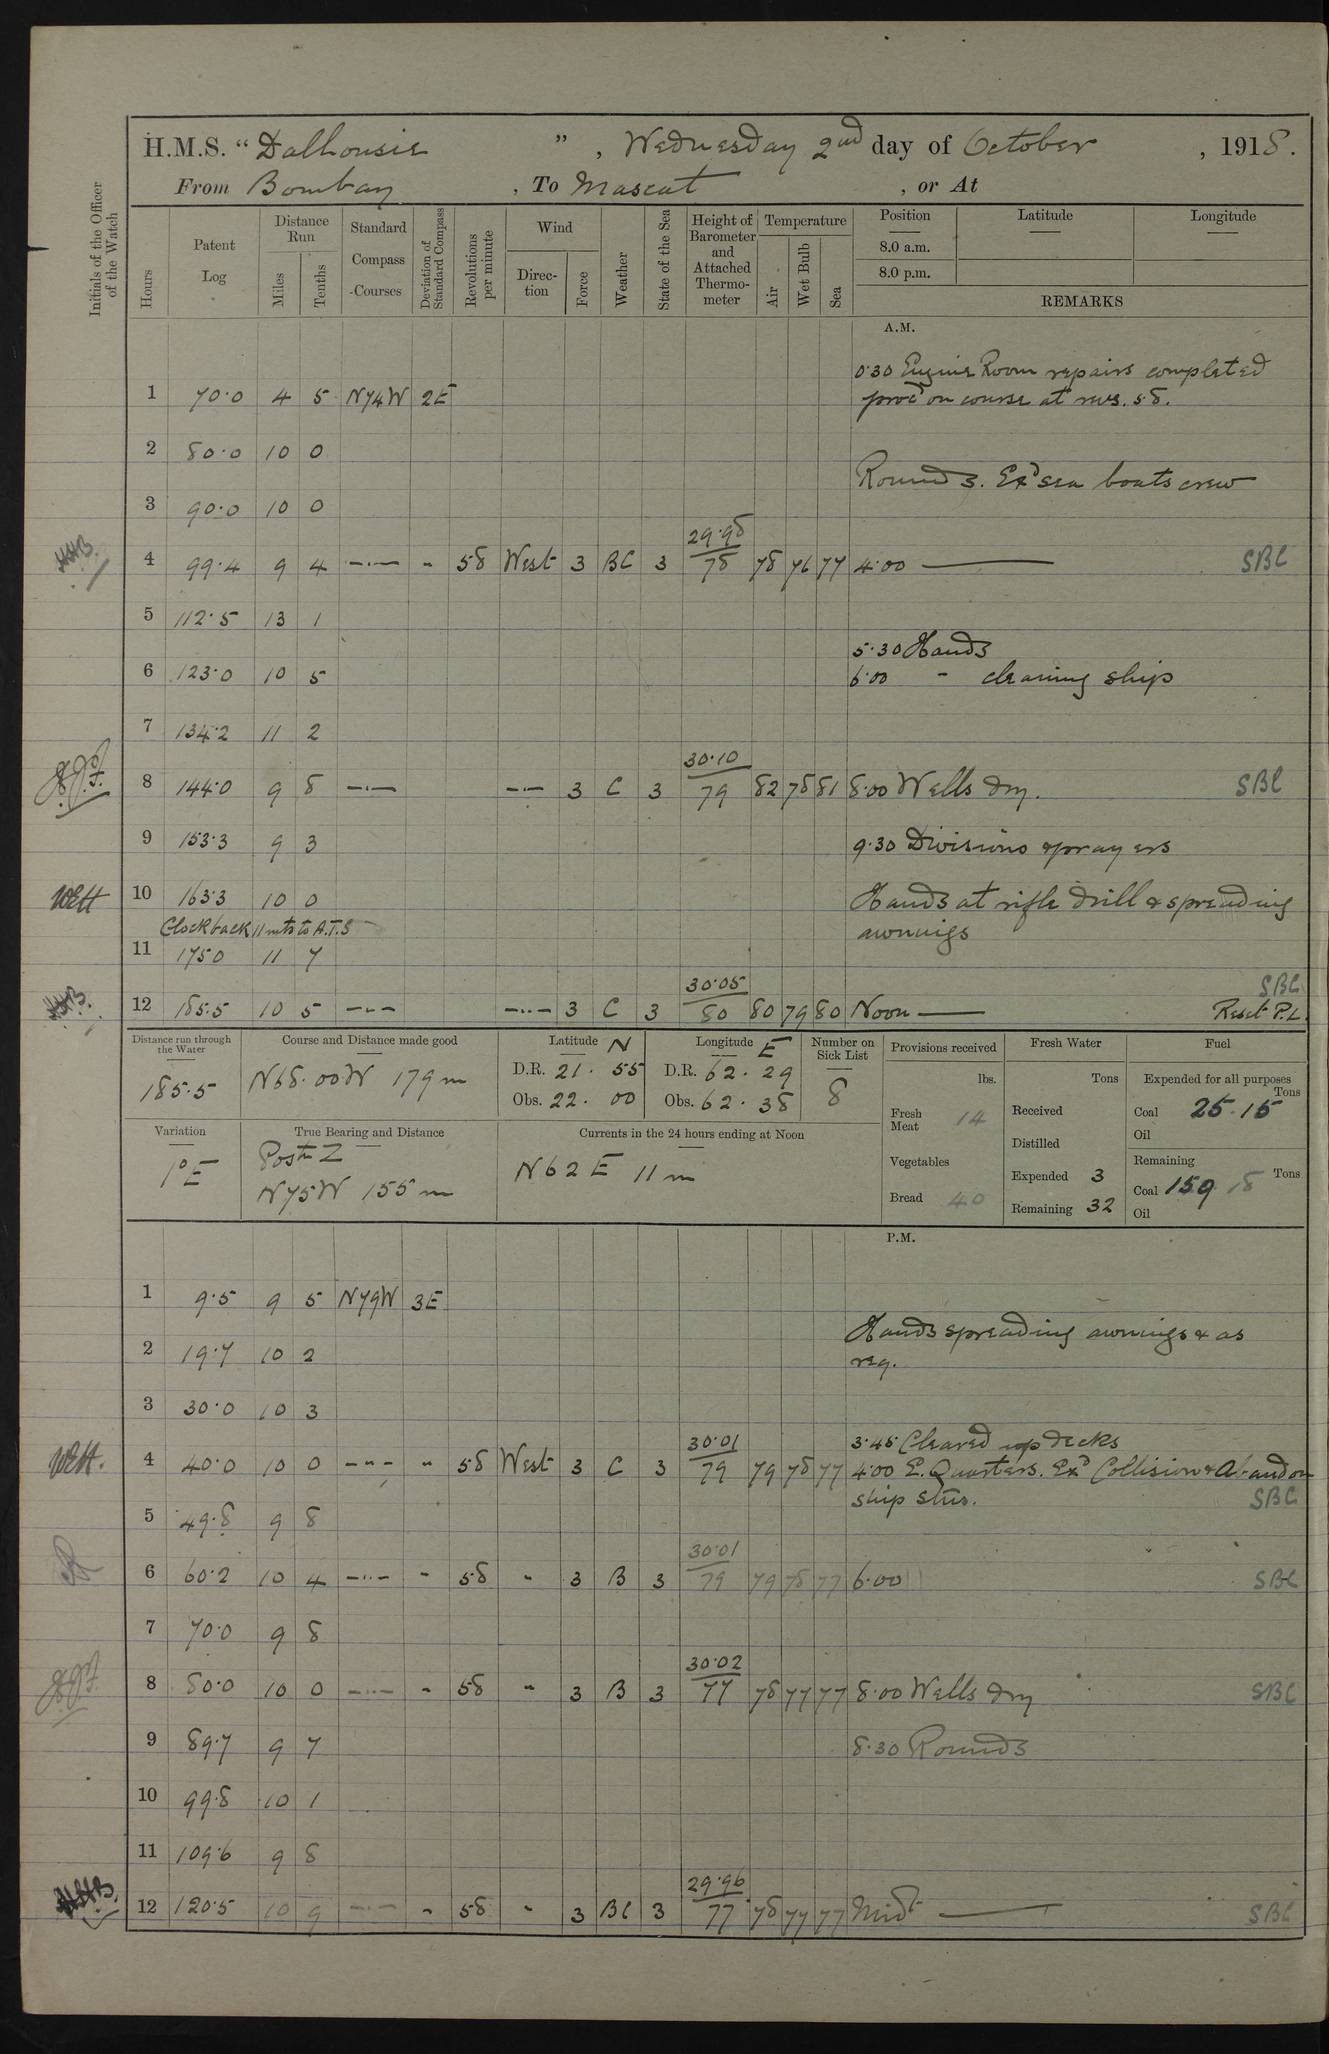 H.M.S. "Dalhousie", Wednesday 2nd day of October, 1918.
From Bombay, To Mascat, or At
Initials of the Officer of the Watch
Hours
Patent Log
Distance Run
Miles
Tenths
Standard Compass Courses
Deviation of Standard Compass
Revolutions per minute
Wind
Direction
Force
Weather
State of the Sea
Height of Barometer and Attached Thermometer
Temperature
Air
Wet Bulb
Sea
Position
8.0 a.m.
8.0 p.m.
Latitude
Longitude
REMARKS
A.M.
0.30 Engine Room repairs completed
1 70.0 4 5 N74W 2E procd on course at revs. 58.
2 80.0 10 0
Rounds. Exd sea boats crew
3 90.0 10 0
29.98
4 99.4 9 4 —·— " 58 West 3 BC 3 78 78 76 77 4.00 — SBC
5 112.5 13 1
5.30 Hands
6 123.0 10 5 6.00 " cleaning ship
7 134.2 11 2
30.10
8 144.0 9 8 —·— —·— 3 C 3 79 82 78 81 8.00 Wells dry. SBC
9 153.3 9 3 9.30 Divisions & prayers
WEH 10 163.3 10 0 Hands at rifle drill & spreading
Clock back 11 mts to A.T.S awnings
11 175.0 11 7
30.05 SBC
12 185.5 10 5 —·— —··— 3 C 3 80 80 79 80 Noon — Reset P.L.
Distance run through the Water
185.5
Course and Distance made good
N68.00W 179m
Latitude N
D.R. 21. 55
Obs. 22. 00
Longitude E
D.R. 62. 29
Obs. 62. 38
Number on Sick List
8
Provisions received
lbs.
Fresh Meat 14
Vegetables
Bread 40
Fresh Water
Tons
Received
Distilled
Expended 3
Remaining 32
Fuel
Expended for all purposes
Tons
Coal 25.15
Oil
Remaining
Coal 159.18 Tons
Oil
Variation
1°E
True Bearing and Distance
Postn Z
N75W 155m
Currents in the 24 hours ending at Noon
N62E 11m
P.M.
1 9.5 9 5 N79W 3E
Hands spreading awnings & as
2 19.7 10 2 req.
3 30.0 10 3
30.01 3.45 Cleared up decks
WEH. 4 40.0 10 0 —··— " 58 West 3 C 3 79 79 78 77 4.00 E. Quarters. Exd Collision & Abandon
ship stns. SBC
5 49.8 9 8
30.01
6 60.2 10 4 —··— " 58 " 3 B 3 79 79 78 77 6.00 SBC
7 70.0 9 8
30.02
8 80.0 10 0 —··— " 58 " 3 B 3 77 78 77 77 8.00 Wells dry SBC
9 89.7 9 7 8.30 Rounds
10 99.8 10 1
11 109.6 9 8
29.96
12 120.5 10 9 —·— " 58 " 3 BC 3 77 78 77 77 Midt — SBC